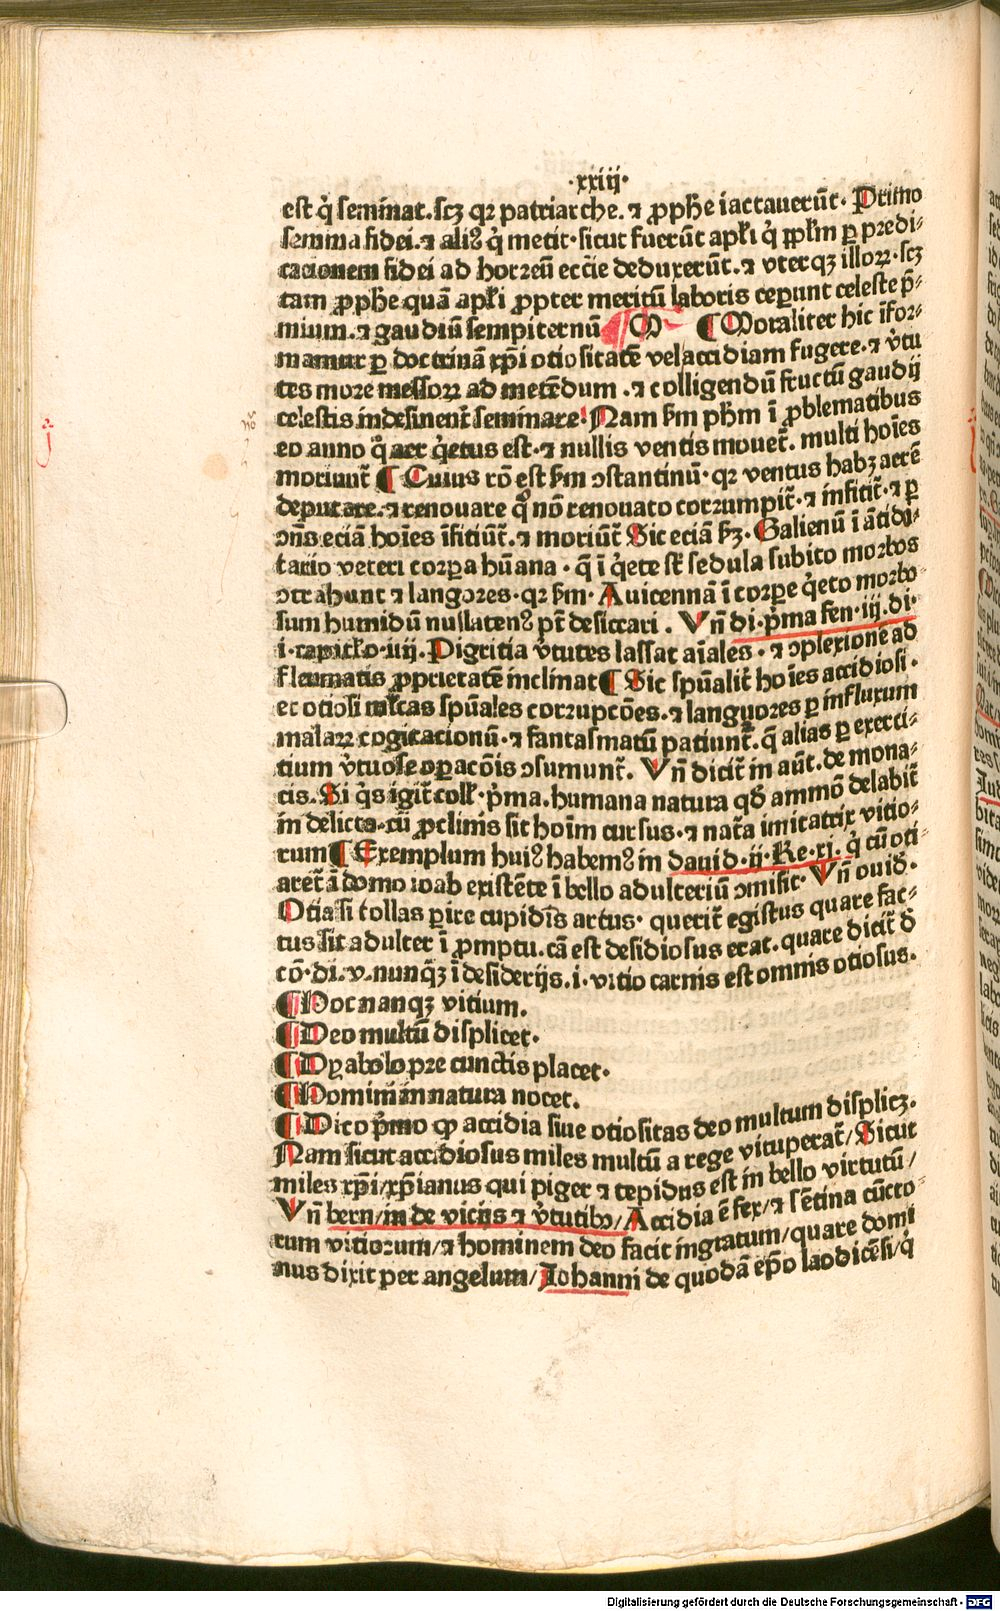 ·xxiij·
est q̇ seminat.scꝫ qꝛ patriarche.⁊ ꝓph̄e iactauerūt· Primo
semina fidei.⁊ aliꝰ q̇ metit·sicut fuerūt apl̄i q̇ ppl̄m ꝑ predi⸗
cacionem fidei ad horreū ecc̄ie deduxerūt.⁊ vterqꝫ illoꝝ·scꝫ
tam ꝓph̄e quā apl̄i ꝓpter meritū laboris ceperunt celeste p̄⸗
mium.⁊ gaudiū sempiternū ¶ M ¶ Moraliter hic īfor⸗
mamur ꝑ doctrinā xp̄i otiositatē vel accidiam fugere·⁊ v̄tu
tes more messoꝝ ad metēdum .⁊ colligendū fructū gaudij
celestis indesinent̄ seminare· Nam s̄m ph̄m ī ꝓblematibus
eo anno q̄ aer q̇etus est·⁊ nullis ventis mouet̄. multi hoīes
moriunt̄ ¶ Cuius rō est s̄m ↄstantinū· qꝛ ventus habꝫ aerē
depurare.⁊ renouare qͦ nō renouato corrumpit̄·⁊ inficit̄·⁊ ꝑ
ↄn̄s eciā hoīes īficiūt̄.⁊ moriūt̄ Sic eciā s̄ꝫ· Galienū ī ātido⸗
tario veteri corpa hūana · q̄ ī q̇ete st̄ sedula subito morbos
ↄtrahunt ⁊ langores·qꝛ s̄m· Auicennā ī corpe q̇eto morbo⸗
sum humidū nullatenꝰ pt̄ desiccari . Vn̄ di·p̄ma fen·iij.di·
i·capitl̄o·iiij.Pigritia v̄tutes lassat aīales · ⁊ ↄplexionē ad
fleumatis ꝓprietatē inclinat ¶ Sic spūalit̄ hoīes accidiosi·
et otiosi ml̄tas spūales corrupcōes.⁊ languores ꝑ influxum
malaꝝ cogitacionū·⁊ fantasmatū patiunt̄.q̄ alias ꝑ exerci⸗
tium v̄tuose oꝑacōis ↄsumunt̄. Vn̄ dicit̄ in aūt.de mona⸗
cis.Si q̇s igit̄ coll̄·p̄ma.humana natura qd̄ ammō delabit̄
in delicta·cū ꝓcliuis sit hoīm cursus·⁊ nat̄a imitatrix vitio⸗
rum ¶ Exemplum huiꝰ habemꝰ in dauid·ij·Re·xi. q̇ cū oti⸗
aret̄ ī domo ioab existēte ī bello adulteriū ↄmisit· Vn̄ ouid·
Otia si tollas ꝑire cupidīs artus· querit̄ egistus quare fac⸗
tus sit adulter ī ꝓmptu.cā est desidiosus erat.quare dicit̄ d̄
cō·di.v.nunq̄ꝫ ī desiderijs.i·vitio carnis est omnis otiosus.
¶ Hoc nanqꝫ vitium.
¶ Deo multū displicet·
¶ Dyabolo pre cunctis placet·
¶ Hominū in natura nocet.
¶ Dico p̄mo ꝙ accidia siue otiositas deo multum displicꝫ.
Nam sicut accidiosus miles multū a rege vituperat̄/Sicut
miles xp̄i/xp̄ianus qui piger ⁊ tepidus est in bello virtutū/
Vn̄ bern/in de vicijs ⁊ v̄tutibꝰ/Accidia ē fex/⁊ sētina cūcto⸗
rum vitiorum/⁊ hominem deo facit ingratum/quare domi
nus dixit per angelum/Iohanni de quodā ep̄o laodicēsi/q̇
Digitalisierung gefördert durch die Deutsche Forschungsgemeinschaft - DFG